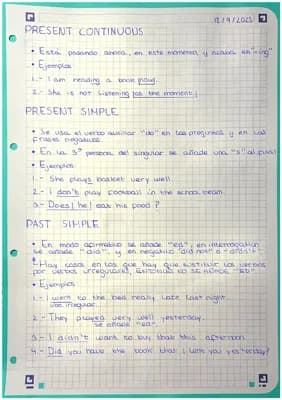 12/9/2023
PRESENT CONTINUOUS
• Está pasando ahora, en este momento y acaba en "ing"
• Ejemplos
1.- I am reading a book
2.- She is not listening
PRESENT SIMPLE
• Se usa el verbo auxiliar "do" en las preguntas y en las
frases negativas.
• En la 3ª persona del singular se añade una "s" al final
• Ejemplos:
1.- She plays basket very well.
2.- I don't play football in the school team
3.- Does he eat his food?
PAST SIMPLE
• En modo afirmativo se añade "ed", en interrogativo
se añade "did", y en negativo "did not" o "didn't".
• Hay casos en los que hay que sustituir los verbos
por verbos irregulares, entonces NO SE AÑADE "ED".
• Ejemplos
1.- I went to the bed really late last night.
2.- They played very well yesterday.
se añade "ed".
3.- I didn't want to buy that this afternoon
4.- Did you have the book that I lent you yesterday?